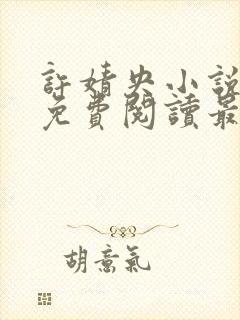 許婧央小說
免費閱讀最
胡意氣